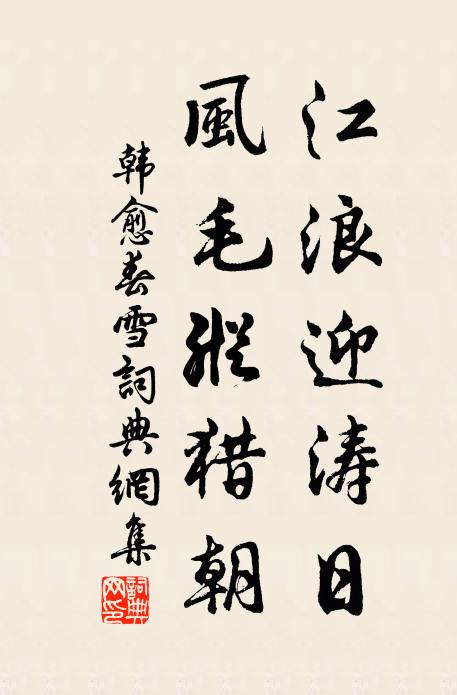 江浪迎涛日
風毛縱猎朝
韩愈春雪詞典網集
詞典网印